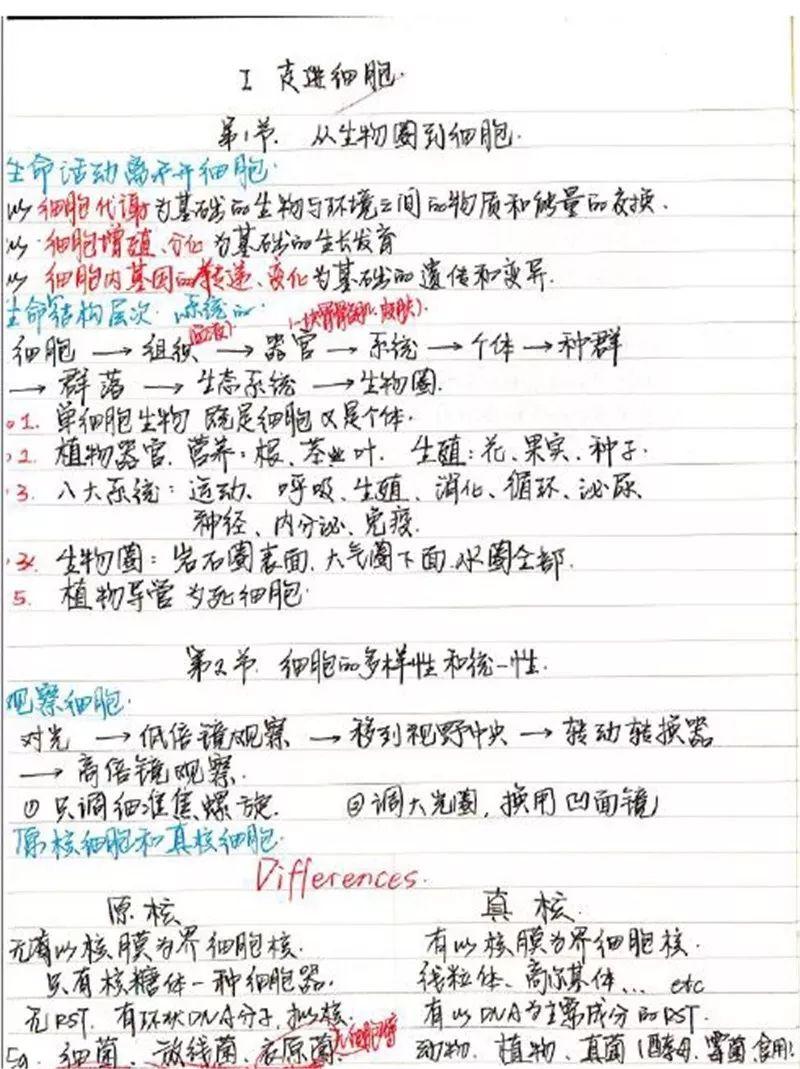 I 走进细胞.
第1节. 从生物圈到细胞.
生命活动离不开细胞.
以 细胞代谢为基础的生物与环境之间的物质和能量的交换.
以 细胞增殖、分化为基础的生长发育
以 细胞内基因的传递、变化为基础的遗传和变异.
生命结构层次. 系统的
(血液) (一块骨骼肌、皮肤).
细胞 → 组织 → 器官 → 系统 → 个体 → 种群
→ 群落 → 生态系统 → 生物圈.
1. 单细胞生物 既是细胞又是个体.
2. 植物器官. 营养: 根、茎、叶. 生殖: 花、果实、种子.
3. 八大系统: 运动、呼吸、生殖、消化、循环、泌尿、
神经、内分泌、免疫.
生物圈: 岩石圈表面、大气圈下面、水圈全部.
5. 植物导管 为死细胞.
第2节. 细胞的多样性和统一性.
观察细胞.
对光 → 低倍镜观察 → 移到视野中央 → 转动转换器
→ 高倍镜观察.
① 只调细准焦螺旋. ② 调大光圈, 换用凹面镜
原核细胞和真核细胞.
Differences.
原核 真核.
无有以核膜为界细胞核. 有以核膜为界细胞核.
只有核糖体一种细胞器. 线粒体、高尔基体... etc
无RST. 有环状DNA分子, 拟核. 有以DNA为主要成分的RST.
Eg. 细菌、放线菌、衣原菌. 动物、植物、真菌(酵母、霉菌、食用